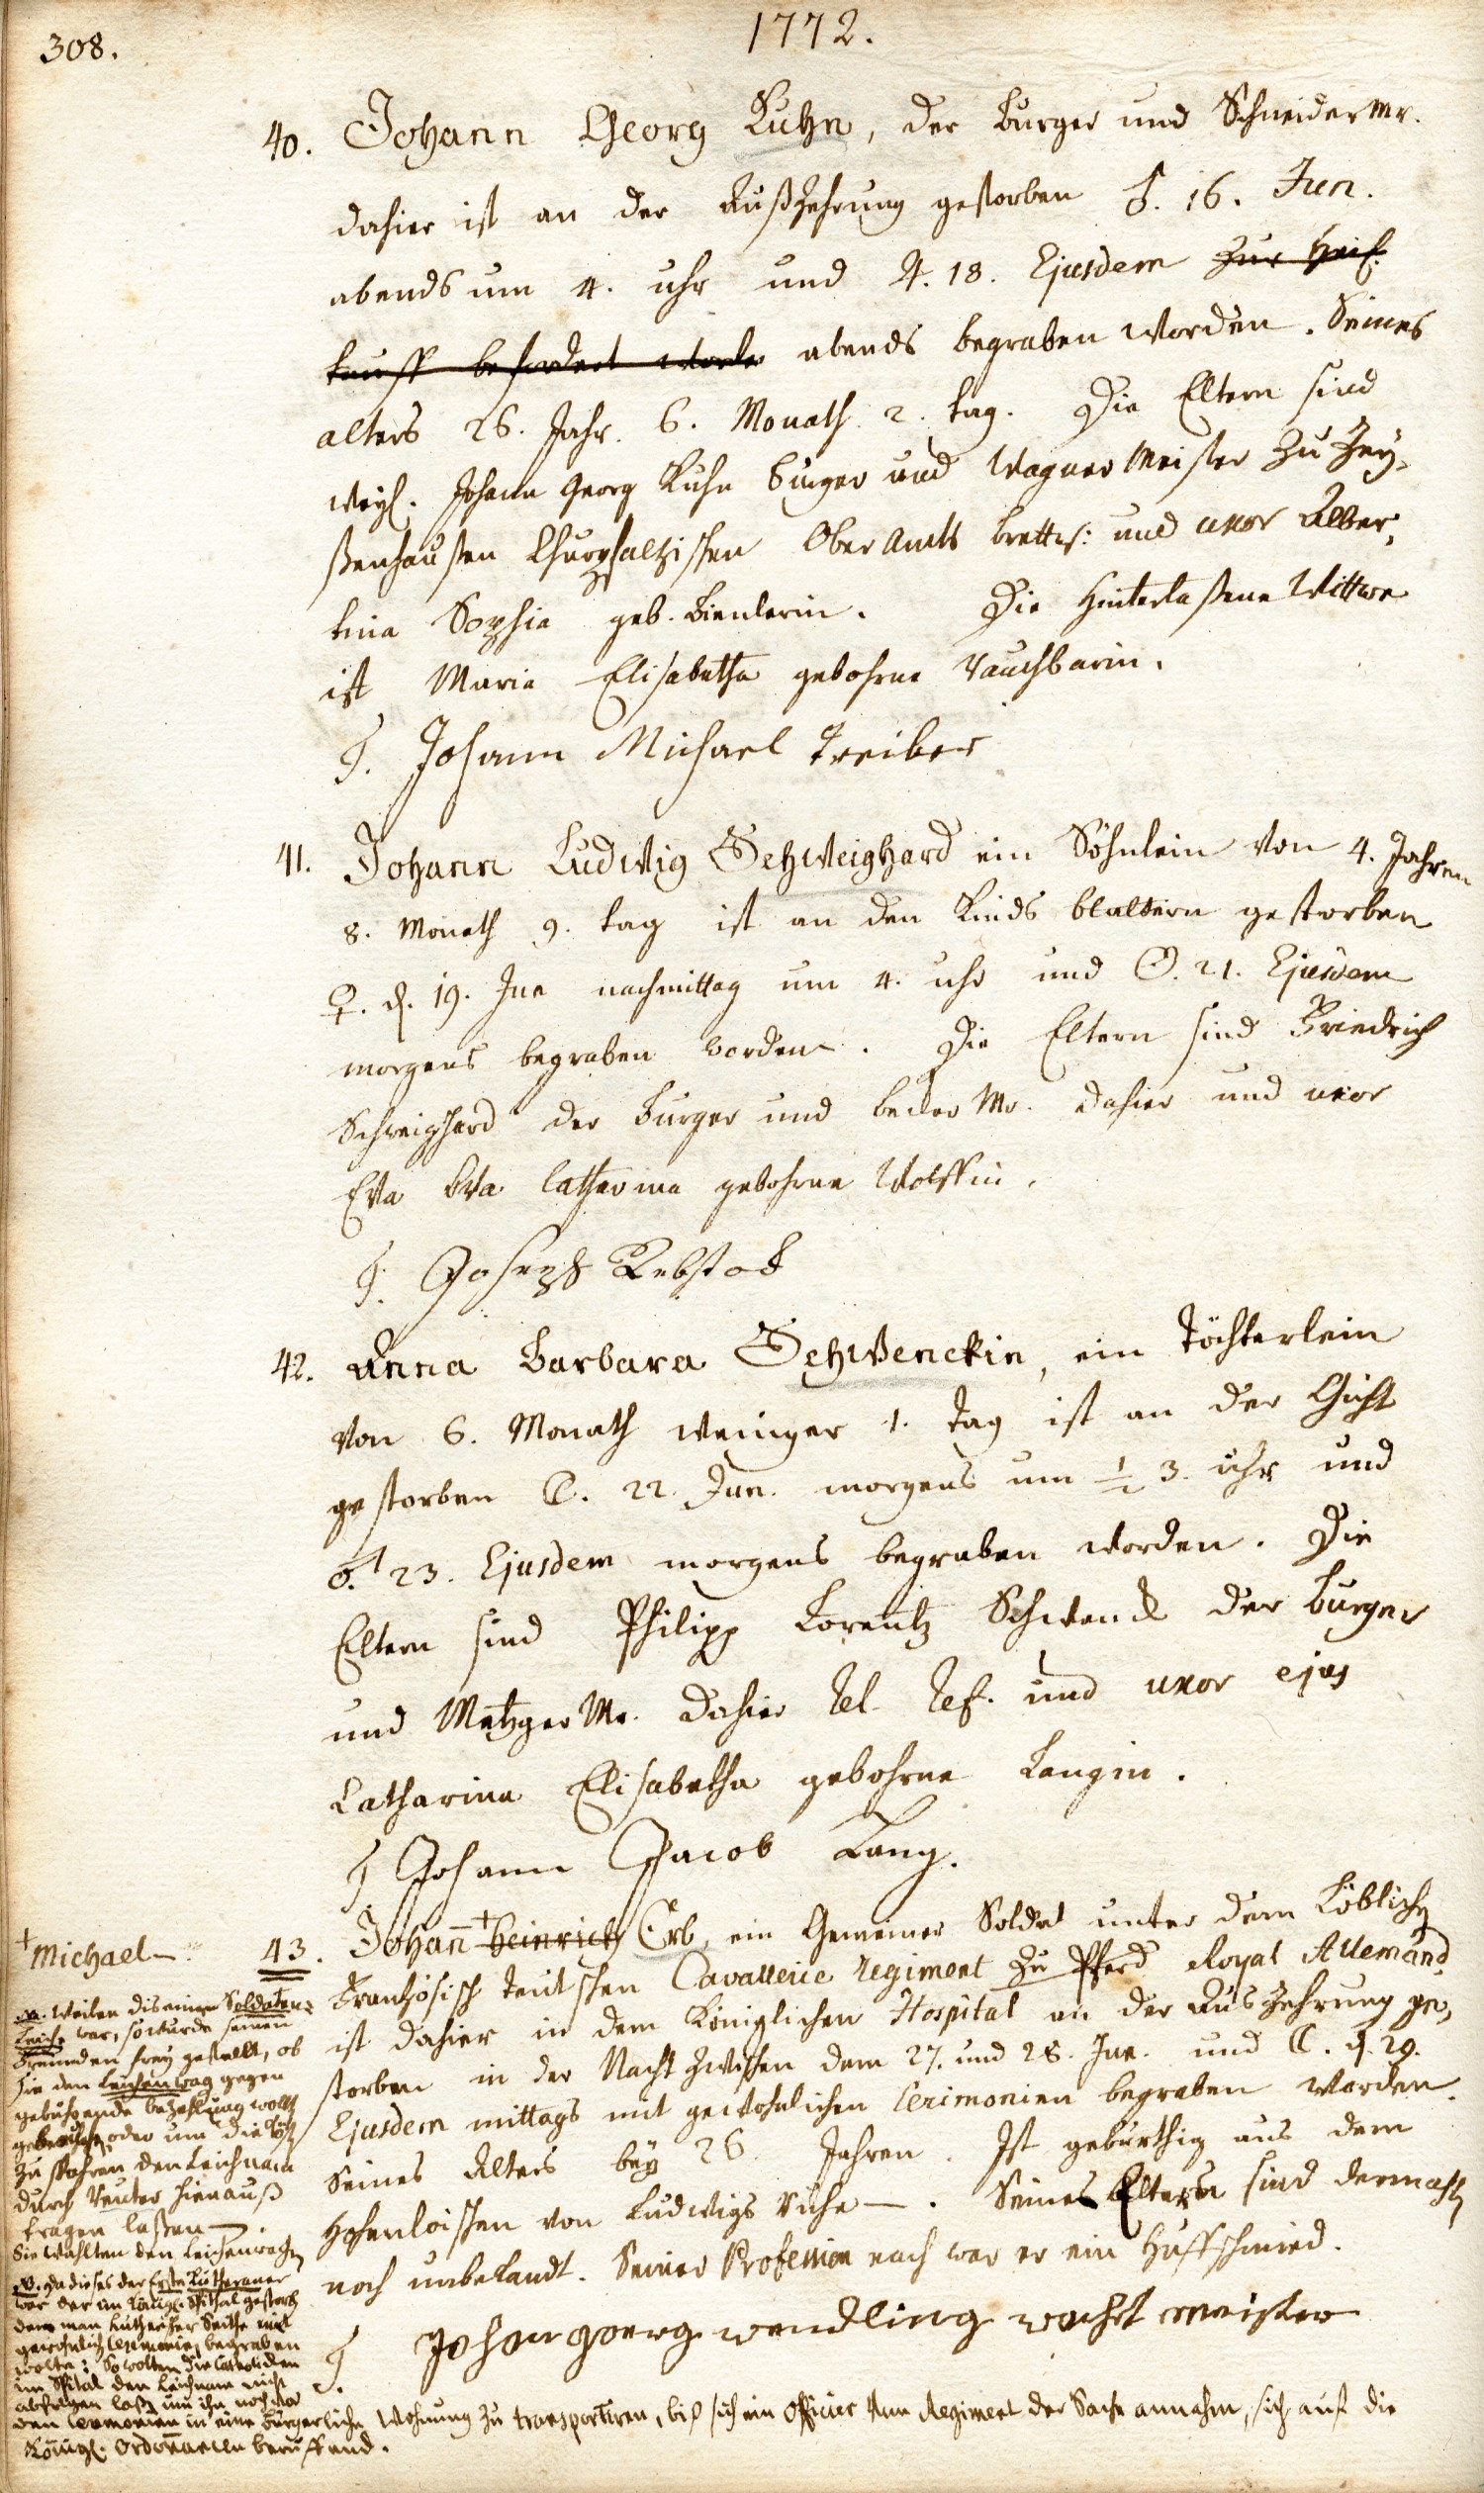 308.
1772.
40. Johann Georg Kuhn, der Burger und Schneider Mr.
dahier ist an der Außzehrung gestorben ♂. 16. Jun.
abends um 4. uhr und ♃. 18. Ejusdem zur
befördert worden abends begraben worden. Seines
alters 26. Jahr. 6. Monath 2. tag. Die Eltern sind
weyl. Johann Georg Kuhn Burger und Wagner Meister zu Zey-
ßenhaußen Churpfaltzischen Ober Amts Brett: und uxor Alber-
tina Sophia geb. Bienlerin. Die Hinterlaßene Wittwe
ist Maria Elisabetha gebohrne Rauchbarin.
T. Johann Michael Treiber
41. Johann Ludwig Schweighard ein Söhnlein von 4. Jahren
8. Monath 9. tag ist an den Kinds blattern gestorben
♀. d. 19. Jun nachmittag um 4. uhr und ☉. 21. Ejusdem
morgens begraben worden. Die Eltern sind Friedrich
Schweighard der Burger und Becker Mr. dahier und uxor
Eva Eva Catharina gebohrne Wolffin.
T. Joseph Rebstock
42. Anna Barbara Schwenckin, ein Töchterlein
von 6. Monath weniger 1. Tag ist an der Gicht
gestorben ☾. 22. Jun. morgens um ½ 3. uhr und
♂. 23. Ejusdem morgens begraben worden. Die
Eltern sind Philipp Lorentz Schwenck der Burger
und Metzger Mr. dahier Rel. Ref. und uxor ejus
Catharina Elisabetha gebohrne Langin.
T Johann Jacob Lang.
43. Johann + Heinrich Erb, ein Gemeiner Soldat unter dem Löblichen
Frantzösisch teutschen Cavallerie Regiment zu Pferd Royal Allemand,
ist dahier in dem Königlichen Hospital an der Auszehrung ge-
storben in der Nacht zwischen dem 27. und 28. Jun. und ☾. d. 29.
Ejusdem mittags mit gewohnlichen Cerimonien begraben worden.
Seines Alters bey 26 Jahren. Ist gebürthig aus dem
Hohenloischen von Ludwigs Ruhe —. Seines Eltern sind dermahlen
noch unbekandt. Seiner Profession nach war er ein Huffschmied.
T. Johan goerg wendling wacht meister
+ Michael —
NB. Weilen dis einen Soldaten-
Leiche war, so wurde seinen
Freunden frey gestellt, ob
sie den Leichenwag gegen
gebührende bezahlung wollt
gebrauchen, oder um die Köst
zu spahren den Leichnam
durch Reuter hinauß
tragen laßen —.
Sie wählten den Leichenwagen
NB. Da dieses der Erste Lutheraner
war der im Königl. Spithal gestorb
den man Luthrischer Seithe mit
gewohnlich Ceremonien begraben
wolte: So wolten die Catholicken
im Spital den Leichnam nicht
abfolgen laßen um ihn nach
den Ceremonien in eine bürgerliche Wohnung zu transportiren, biß sich ein Officier vom Regiment der Sache annahm, sich auf die
Königl. Ordonnanzen beruffend.